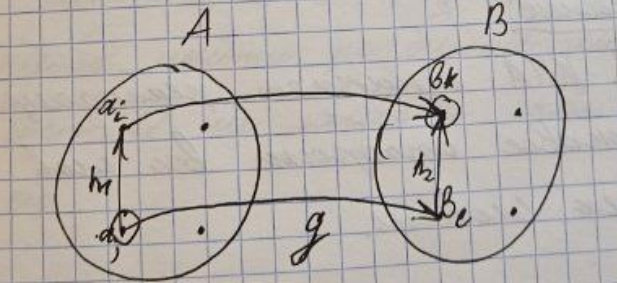 A B
aᵢ bₖ
h₁ h₂
aⱼ bₑ
g